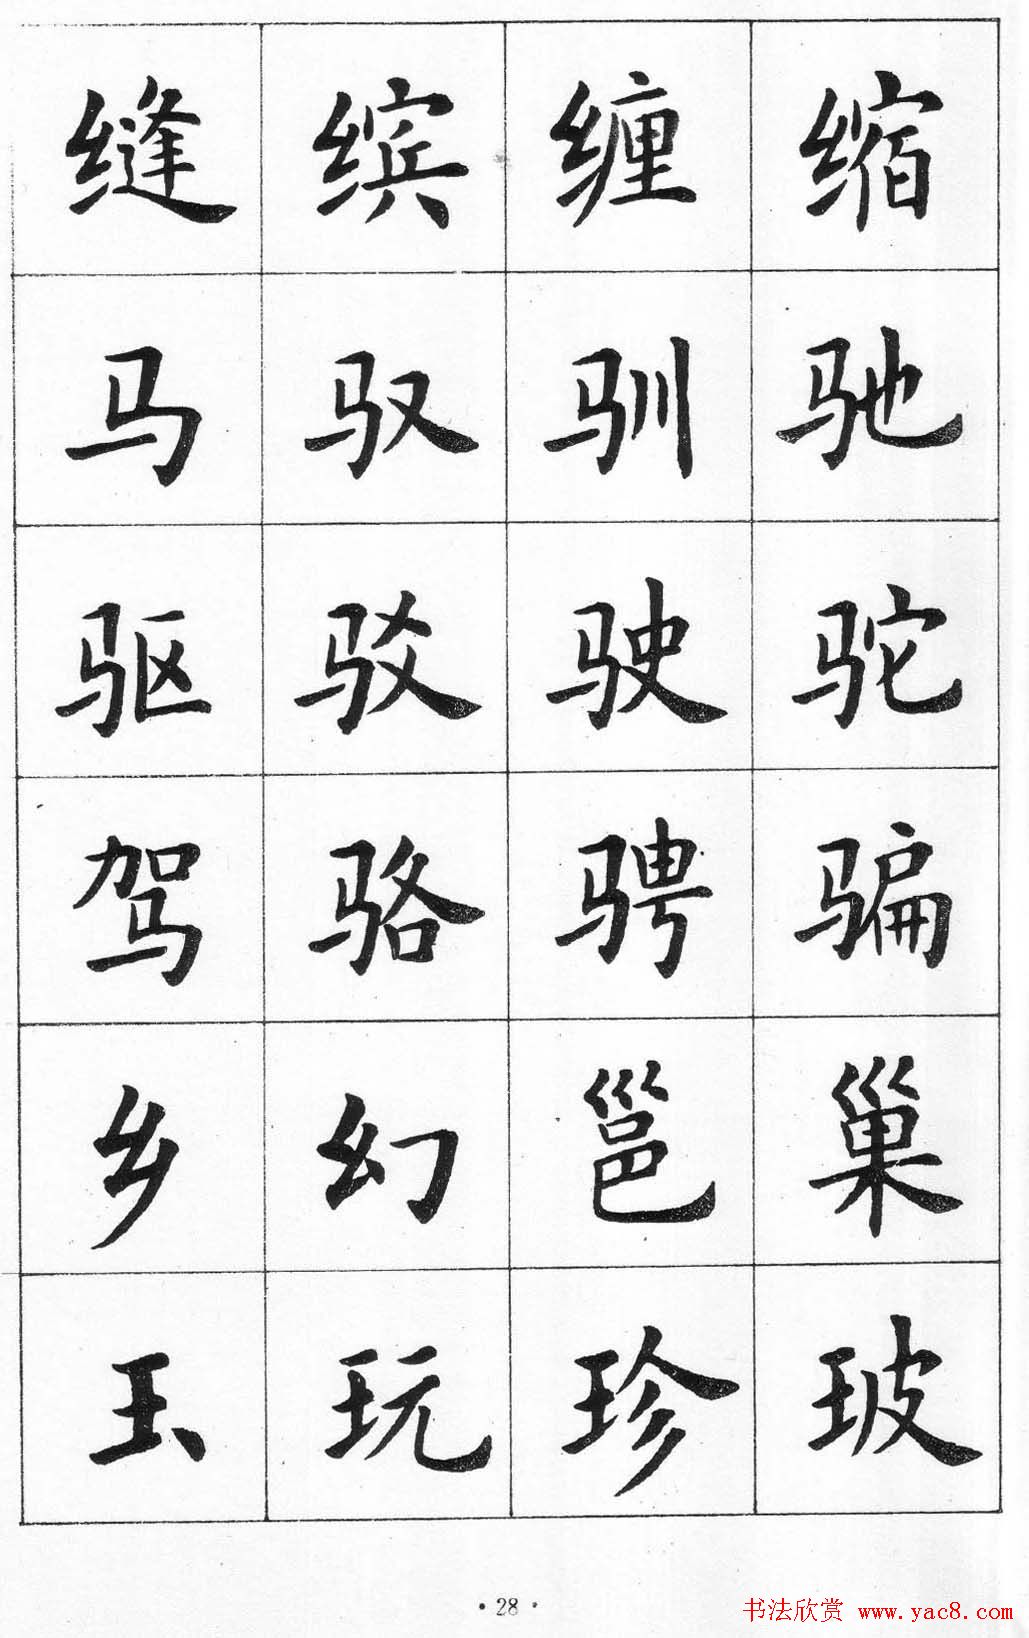 缝 缤 缠 缩
马 驭 驯 驰
驱 驳 驶 驼
驾 骆 骋 骗
乡 幻 邕 巢
玉 玩 珍 玻
·28·
书法欣赏 www.yac8.com